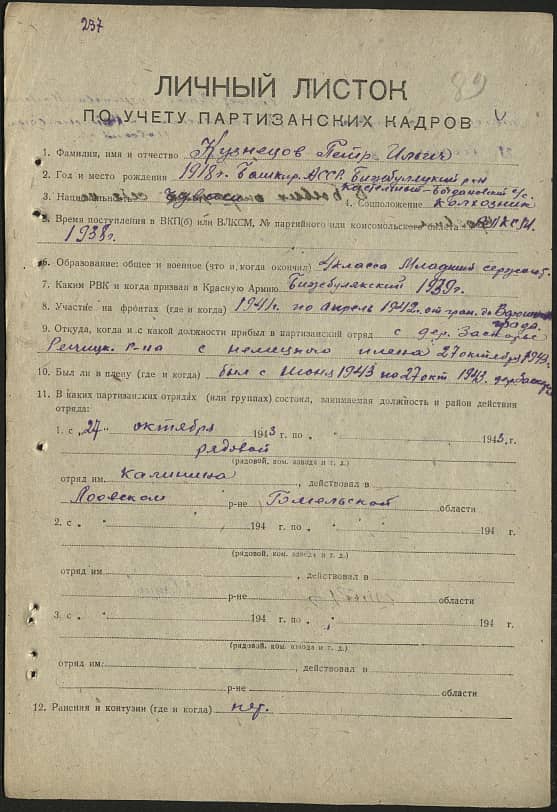 237
89
ЛИЧНЫЙ ЛИСТОК
ПО УЧЕТУ ПАРТИЗАНСКИХ КАДРОВ
1. Фамилия, имя и отчество Кузнецов Петр Ильич
2. Год и место рождения 1918г. Башкир. АССР. Бижбуляцкий р-н
3. Национальность чуваш
4. Соцположение Колхозник
5. Время поступления в ВКП(б) или ВЛКСМ, № партийного или комсомольского билета ВЛКСМ
1938г.
6. Образование: общее и военное (что и когда окончил) 4 класса Младший
7. Каким РВК и когда призван в Красную Армию Бижбулякский 1939г.
8. Участие на фронтах (где и когда) 1941г. по апрель 1942г. от гран. до
9. Откуда, когда и с какой должности прибыл в партизанский отряд с дер. Заспорье
Речицк. р-на с немецкого плена 27 октября 1943г.
10. Был ли в плену (где и когда) был с июня 1943 по 27 окт. 1943. дер.
11. В каких партизанских отрядах (или группах) состоял, занимаемая должность и район действия
отряда:
1. с „27“ октября 1943 г. по „ “ 1943 г.
рядовой
(рядовой, ком. взвода и т. д.)
отряд им. Калинина, действовал в
Лоевском р-не Гомельской области
2. с „ “ 194 г. по „ “ 194 г.
(рядовой, ком. взвода и т. д.)
отряд им. , действовал в
р-не области
3. с „ “ 194 г. по „ “ 194 г.
(рядовой, ком. взвода и т. д.)
отряд им. , действовал в
р-не области
12. Ранения и контузии (где и когда) нет.